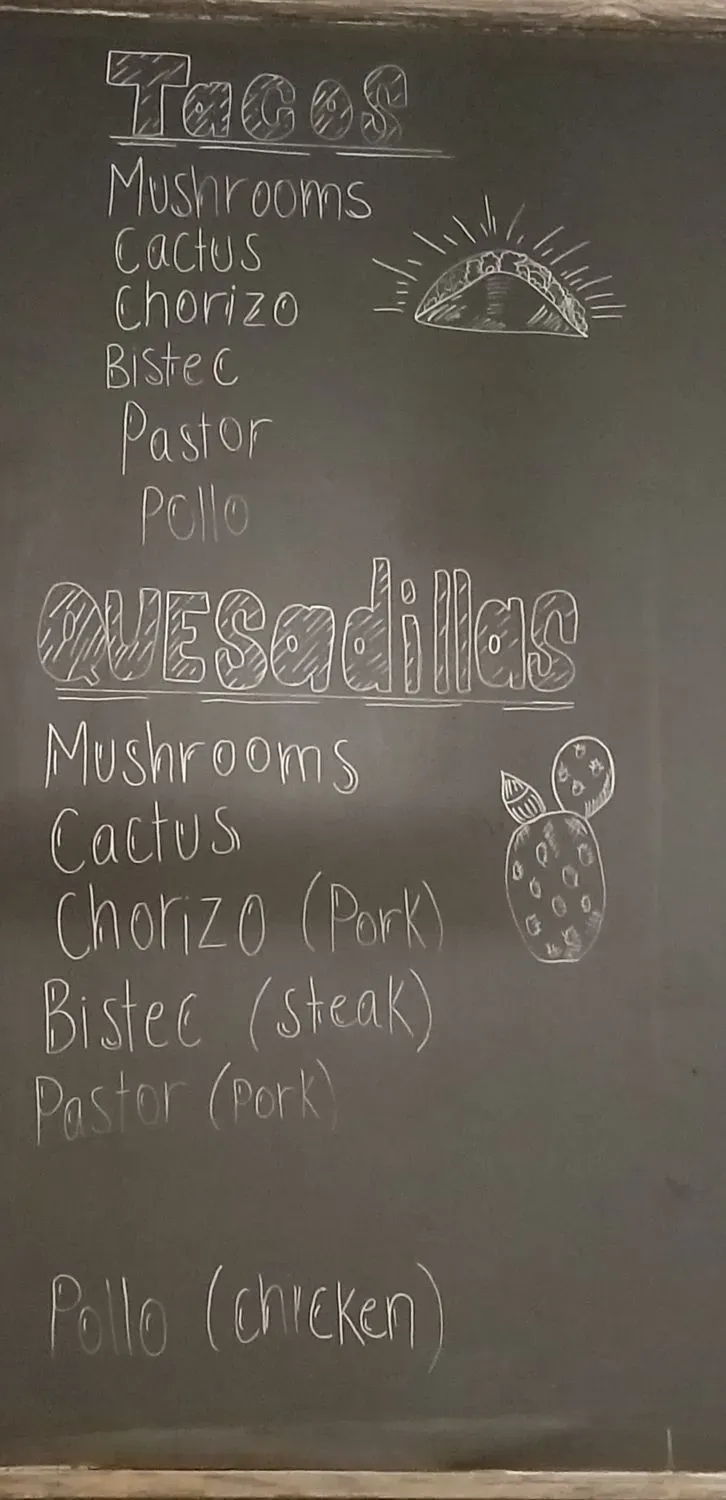 Tacos
Mushrooms
Cactus
Chorizo
Bistec
Pastor
Pollo
QUESadillas
Mushrooms
Cactus
Chorizo (Pork)
Bistec (steak)
Pastor (Pork)
Pollo (chicken)